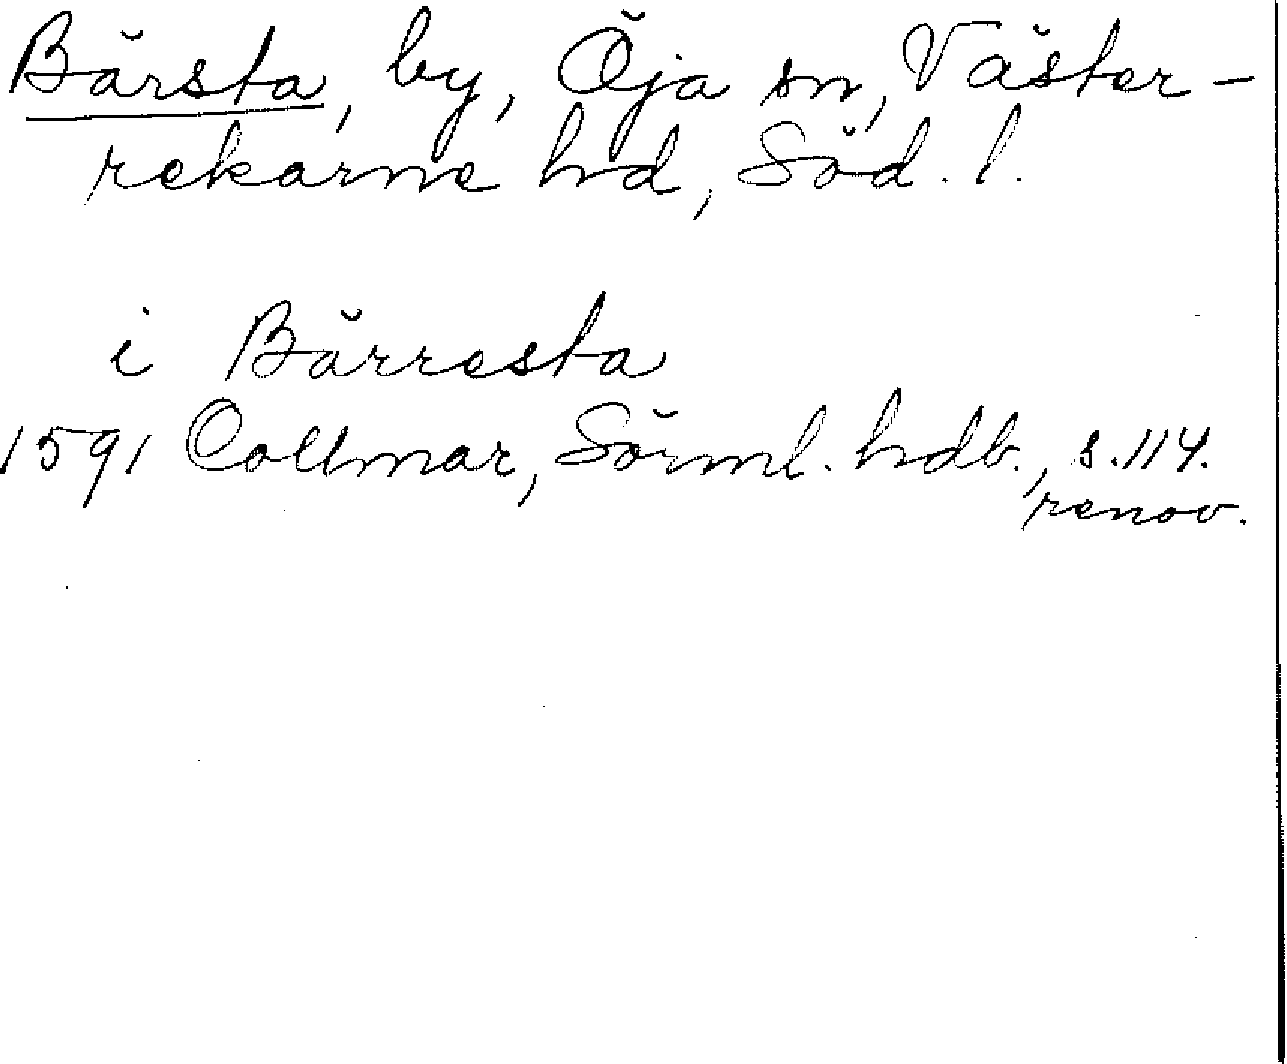 Bärsta, by, Öja sn, Väster-
rekarne hd, Söd. l.
i Bärresta
1591 Collmar, Sörml. hdb., s. 114.
renov.